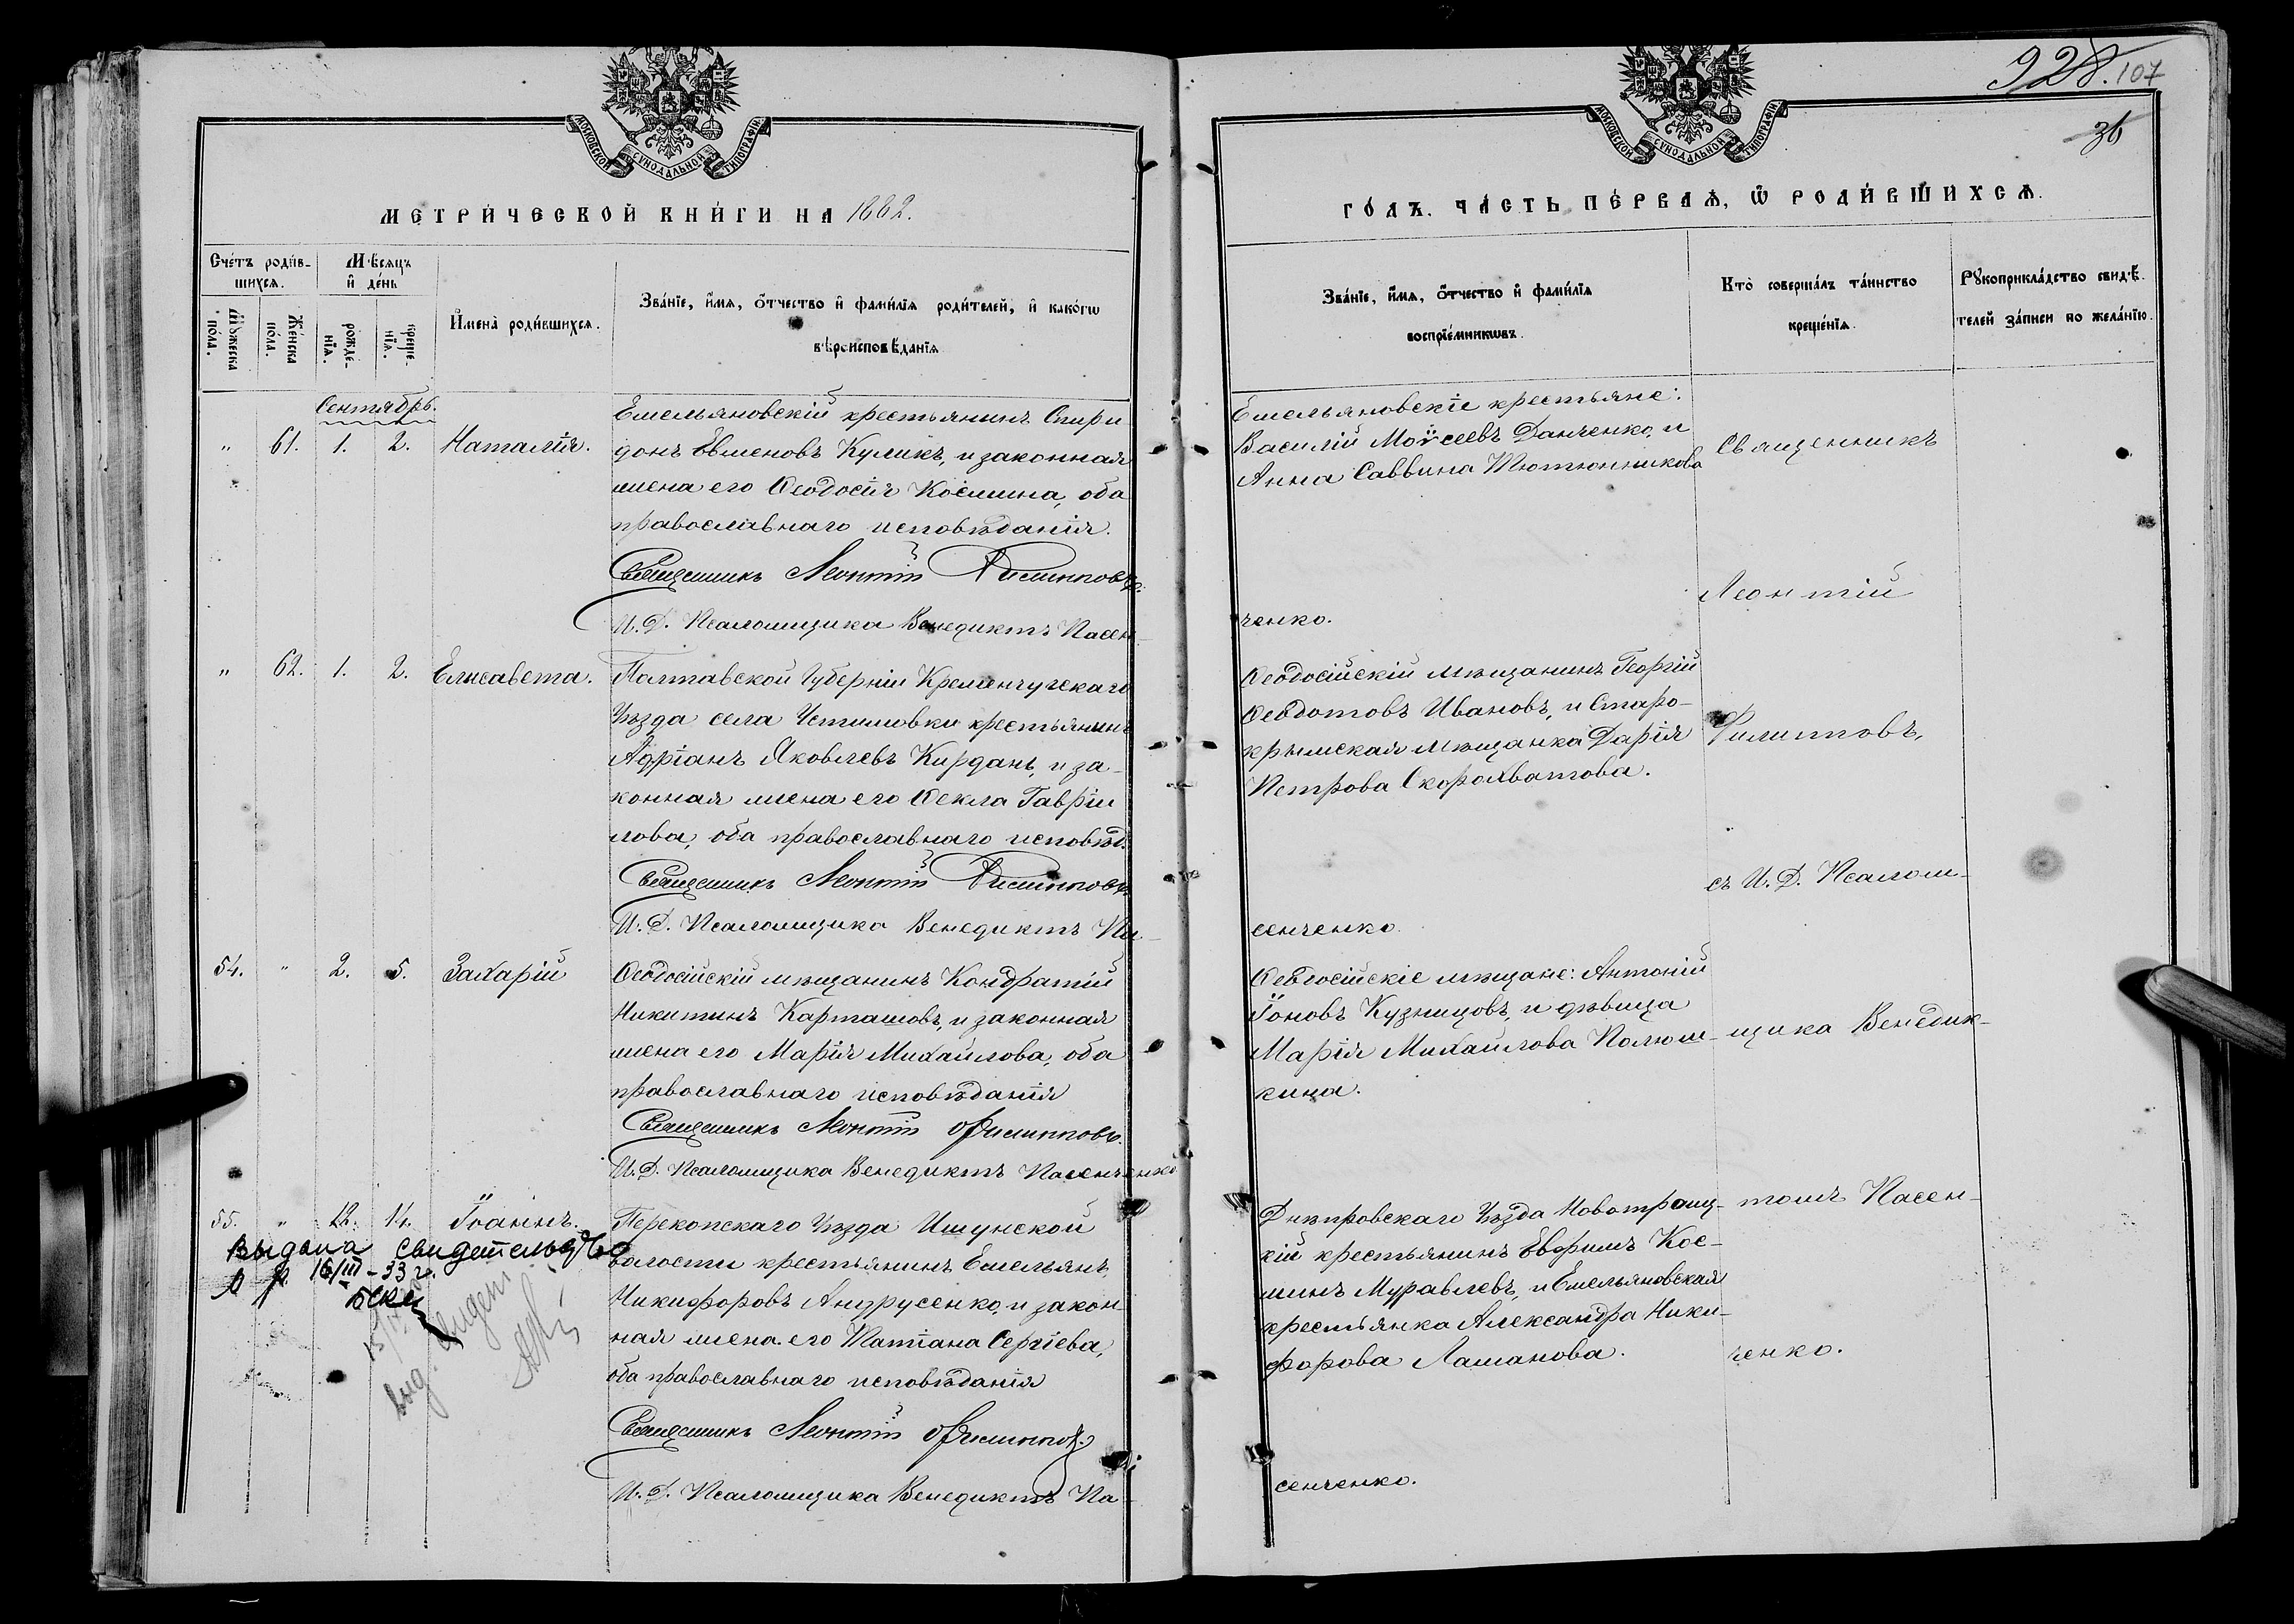 МОСКОВСКОЙ СѴНОДАЛЬНОЙ ТИПОГРАФІИ
МЕТРИ́ЧЕСКОЙ КНИ́ГИ НА 1882.
Сче́тъ роди́в-
шихся.
Мѣ́сяцъ
и҆ де́нь
Мꙋ́жеска по́ла.
Же́нска по́ла.
рожде́-
нїѧ.
креще́-
нїѧ.
И҆мена̀ роди́вшихсѧ.
Зва́нїе, и҆́мѧ, ѻ҆́тчество и҆ фамі́лїѧ роди́телей, и҆ како́гѡ
вѣроисповѣ́данїѧ
Сентябрь.
" 61. 1. 2. Наталія.
Емельяновскій крестьянинъ Спири
донъ Евменовъ Куликъ, и законная
жена его Ѳеодосія Космина, оба
православнаго исповѣданія.
Священникъ Леонтій Филипповъ.
И. Д. Псаломщика Венедиктъ Пасен-
" 62. 1. 2. Елисавета.
Полтавской Губерніи Кременчугскаго
Уѣзда села Устимовки крестьянинъ
Адріанъ Яковлевъ Кирданъ, и за-
конная жена его Ѳекла Гавріи
лова, оба православнаго исповѣд.
Священникъ Леонтій Филипповъ.
И. Д. Псаломщика Венедиктъ Па-
54. " 2. 5. Захарій
Ѳеодосійскій мѣщанинъ Кондратій
Никитинъ Карташовъ, и законная
жена его Марія Михайлова, оба
православнаго исповѣданія
Священникъ Леонтій Филипповъ.
И. Д. Псаломщика Венедиктъ Пасенченко
55. " 12. 14. Іоаннъ.
Перекопскаго Уѣзда Ишунской
волости крестьянинъ Емельянъ
Никифоровъ Андрусенко, и закон
ная жена его Татіана Сергіева,
оба православнаго исповѣданія
Священникъ Леонтій Филипповъ.
И. Д. Псаломщика Венедиктъ Па-
Выдана свидетельство
16/III-33 г.
выд.
928. 107
36
МОСКОВСКОЙ СѴНОДАЛЬНОЙ ТИПОГРАФІИ
ГО́ДЪ. ЧА́СТЬ ПЕ́РВАѦ, Ѡ҆ РОДИ́ВШИХСѦ.
Зва́нїе, и҆́мѧ, ѻ҆́тчество и҆ фамі́лїѧ
воспрїе́мникѡвъ.
Кто̀ соверша́лъ та́инство
креще́нїѧ.
Рꙋкоприкла́дство свидѣ́-
телей за́писи по жела́нїю.
Емельяновскіе крестьяне:
Василій Моѵсеевъ Данченко, и
Анна Саввина Тютюнникова
ченко.
Ѳеодосійскій мѣщанинъ Георгій
Ѳеодотовъ Ивановъ, и Старо-
крымская мѣщанка Дарія
Петрова Скорохватова.
сенченко.
Ѳеодосійскіе мѣщане: Антоній
Іоновъ Кузнецовъ, и дѣвица
Марія Михайлова Полюш-
кина.
Днѣпровскаго Уѣзда Новотроиц-
кій крестьянинъ Евфимъ Кос-
минъ Муравлевъ, и Емельяновская
крестьянка Александра Ники-
форова Лашанова.
сенченко.
Священникъ
Леонтій
Филипповъ,
съ И. Д. Псалом-
щика Венедик-
томъ Пасен-
ченко.